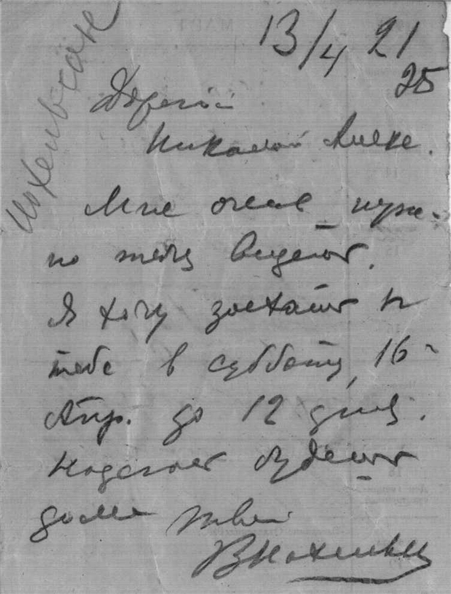 13/4 21
25
Дорогой
Николай Алекс.
Мне очень нуж-
но тебя видеть.
Я хочу заехать к
тебе в субботу, 16-
Апр. до 12 дня.
Надеюсь будешь
дома Твой